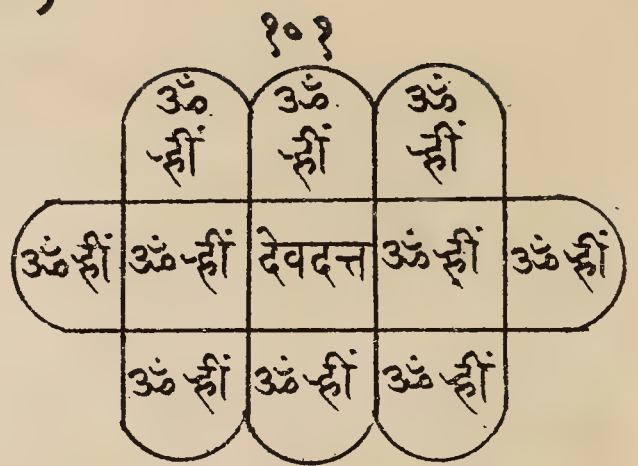 १०१
ॐ ॐ ॐ
ह्रीं ह्रीं ह्रीं
ॐ ह्रीं ॐ ह्रीं देवदत्त ॐ ह्रीं ॐ ह्रीं
ॐ ह्रीं ॐ ह्रीं ॐ ह्रीं